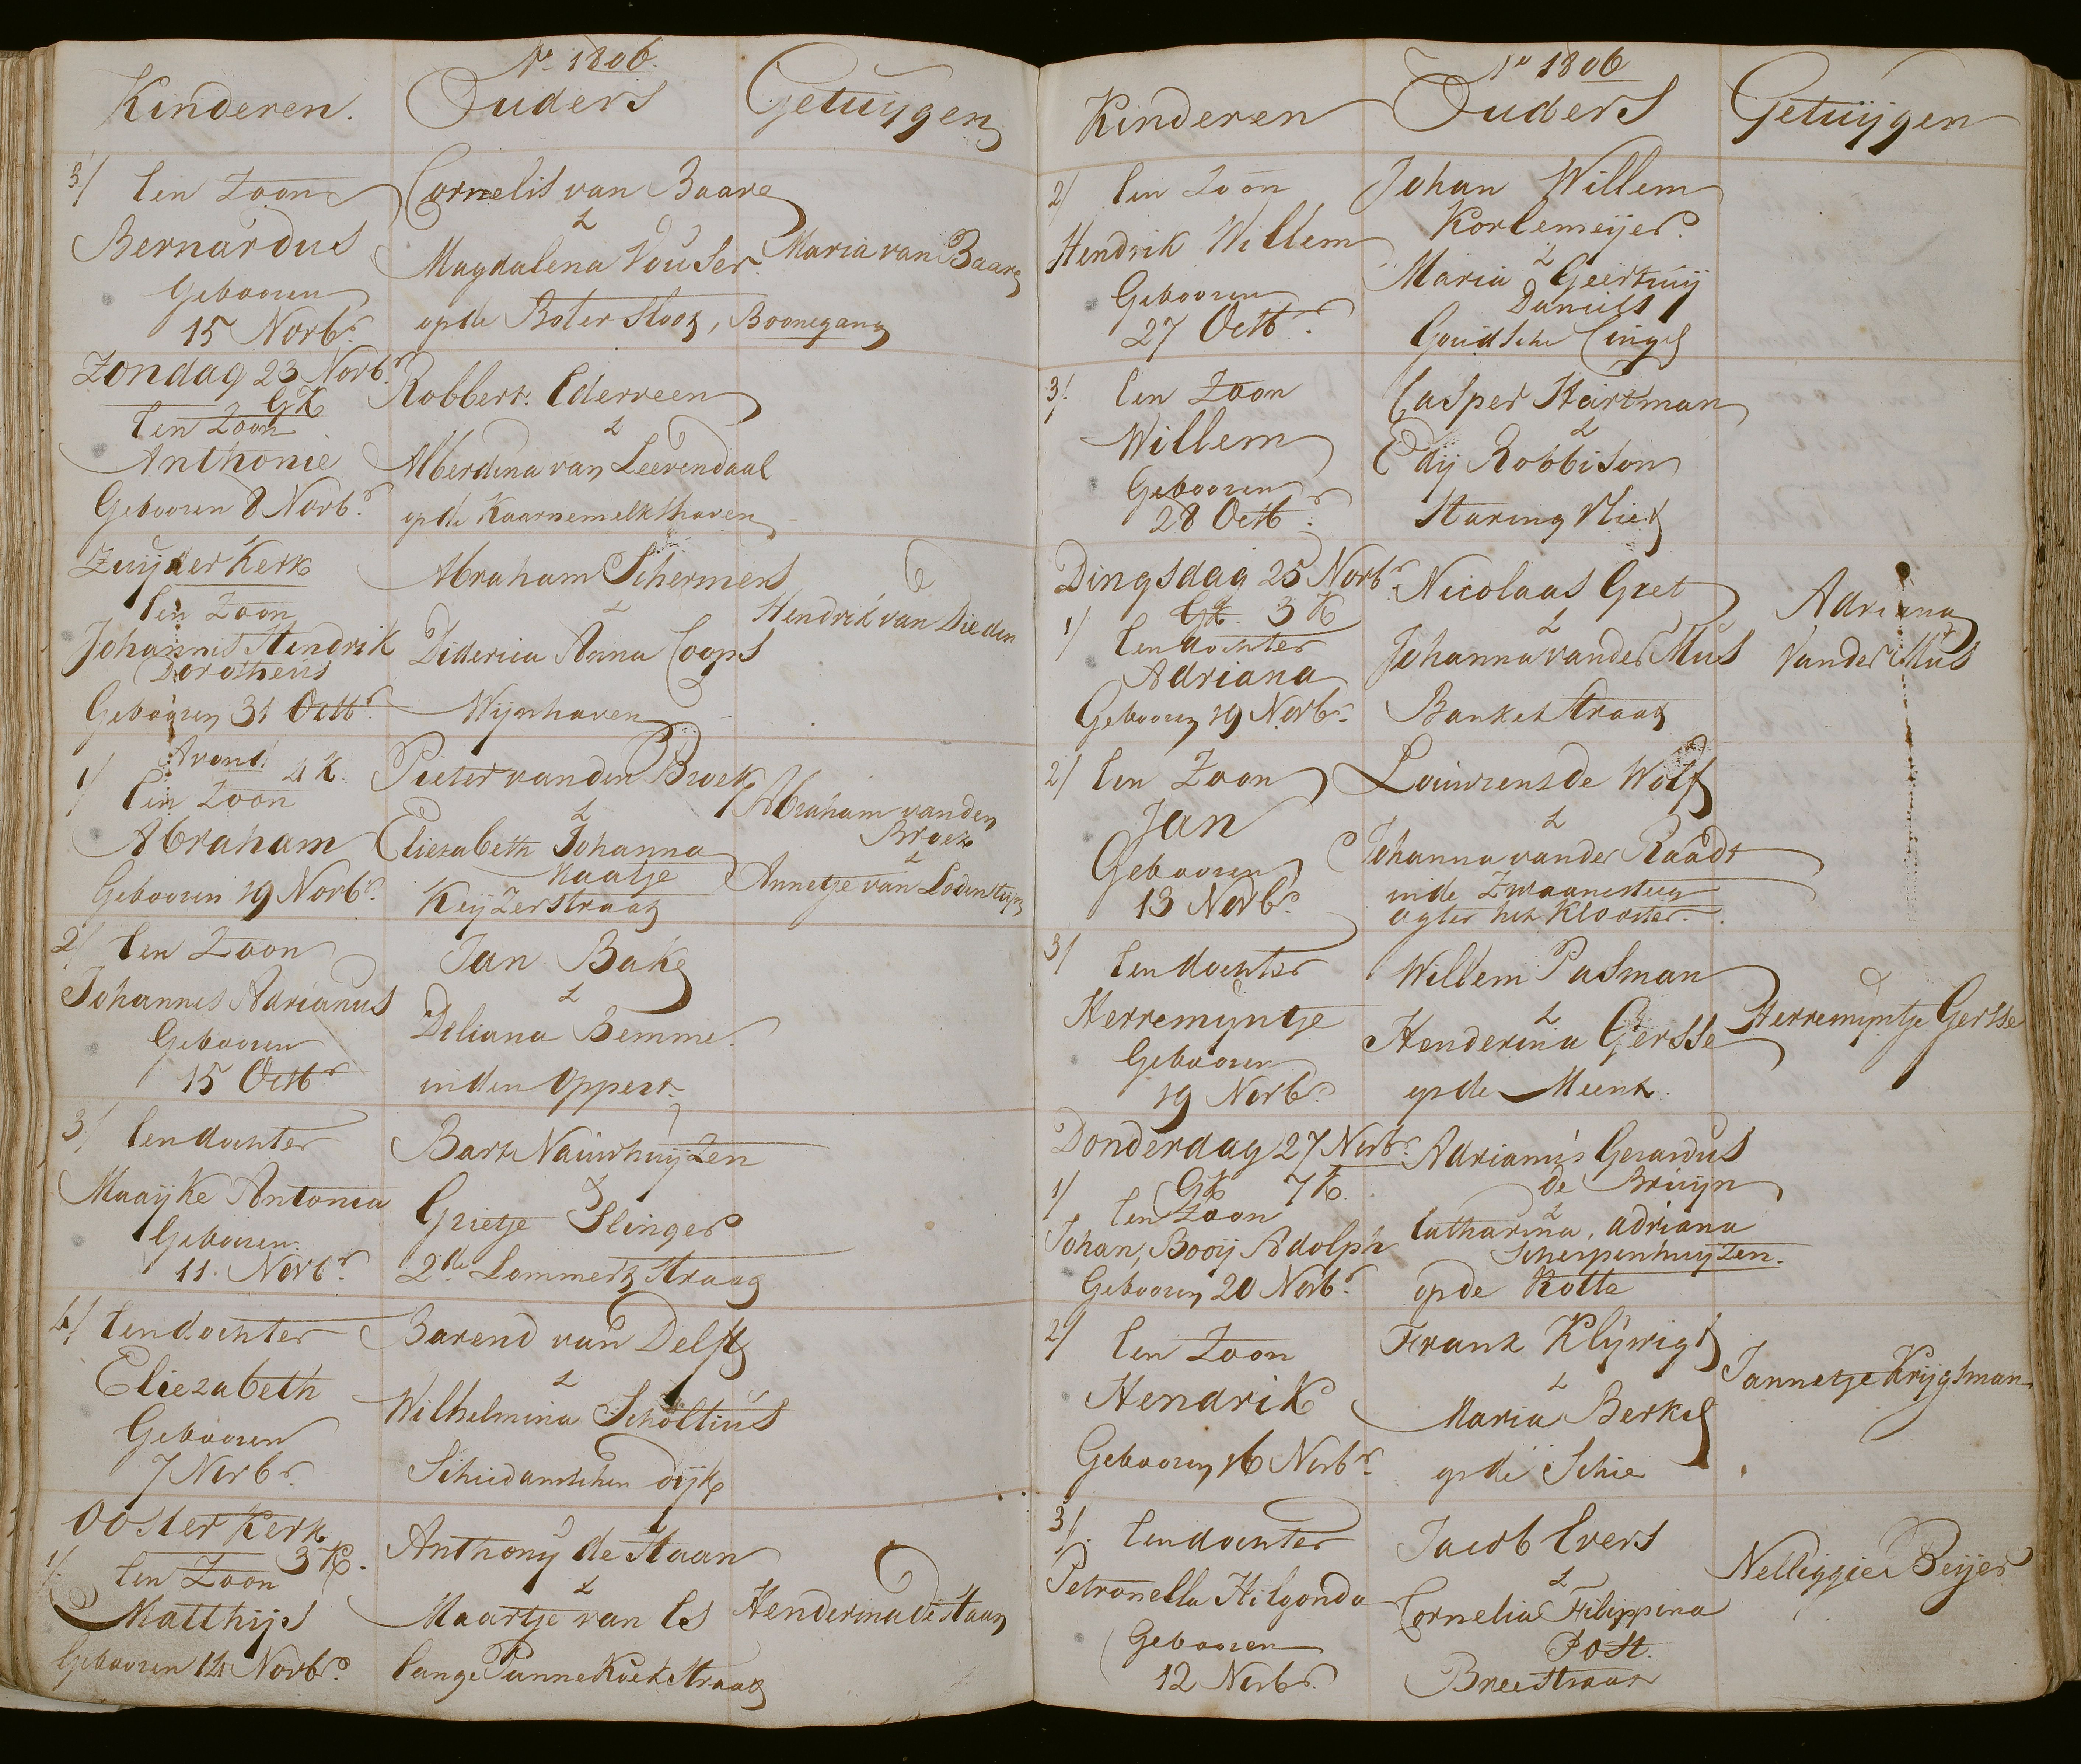 Ao 1806.
Kinderen. Ouders Getuijgen
3/ Een Zoon
Bernardus
Gebooren
15 Novbr.
Cornelis van Baare
&
Magdalena Vouser.
op de Botersloot, Boonegang
Maria van Baare
Zondag 23 Novbr.
GK
Een Zoon
Anthonie
Gebooren 8 Novbr.
Robbert Ederveen
&
Alberdina van Leevendaal
op de Kaarnemelkshaven
Zuijder Kerk
Een Zoon
Johannis Hendrik
Dorotheus
Gebooren 31 Octbr.
Abraham Schermers
&
Diderica Anna Coops
Wijnhaven
Hendrik van Dieden
Avond 4 K.
1/ Een Zoon
Abraham
Gebooren 19 Novbr.
Pieter van den Broek
&
Eliezabeth Johanna
Naatje
Keijzerstraat
Abraham van den
Broek
&
Annetje van Lodensteijn
2/ Een Zoon
Johannis Adrianus
Gebooren
15 Octbr.
Jan Bake
&
Diliana Bemme.
in den Oppert
3/ Een dochter
Maaijke Antonia
Gebooren
11. Novbr.
Bart Nauwhuijzen
&
Grietje Slinger
2de Lommertstraat
4/ Een dochter
Eliezabeth
Gebooren
7 Novbr.
Barend van Delft
&
Wilhelmina Scholtius
Schiedamschen dijk
Ooster Kerk
3 K.
1/ Een Zoon
Matthijs
Gebooren 14 Novbr.
Anthonij de Haan
&
Maartje van Es
Lange Pannekoekstraat
Henderina de Haan
Ao 1806
Kinderen Ouders Getuijgen
2/ Een Zoon
Hendrik Willem
Gebooren
27 Octbr.
Johan Willem
Korlemeijer.
&
Maria Geertruij
Daniels
Goudsche Cingel
3/ Een Zoon
Willem
Gebooren
28 Octbr.
Casper Hartman
&
Edij Robbison
Staring Vliet
Dingsdag 25 Novbr.
GK. 3 K
1/ Een dochter
Adriana
Gebooren 19 Novbr.
Nicolaas Gret
&
Johanna van der Mus
Banketstraat
Adriana
Van der Mus
2/ Een Zoon
Jan
Gebooren
13 Novbr.
Louwrens de Wolf
&
Johanna van der Raadt
in de Zwaanesteeg
agter het Klooster.
3/ Een dochter
Herremijntje
Gebooren
19 Novbr.
Willem Pasman
&
Henderina Gersse
op de Meent.
Herremijntje Gersse
Donderdag 27 Novbr.
GK 7 K.
1/ Een Zoon
Johan, Booij Adolph
Gebooren 20 Novbr.
Adrianus Gerardus
de Bruijn
&
Catharina, Adriana
Scherpenhuijzen.
op de Rotte
2/ Een Zoon
Hendrik
Gebooren 16 Novbr.
Frank Klijwigt
&
Maria Berkel
op de Schie
Jannetje Krijgsman
3/ Een dochter
Petronella Hilgonda
Gebooren
12 Novbr.
Jacob Evers
&
Cornelia Filippina
Post.
Breestraat
Nelliggie Beijer